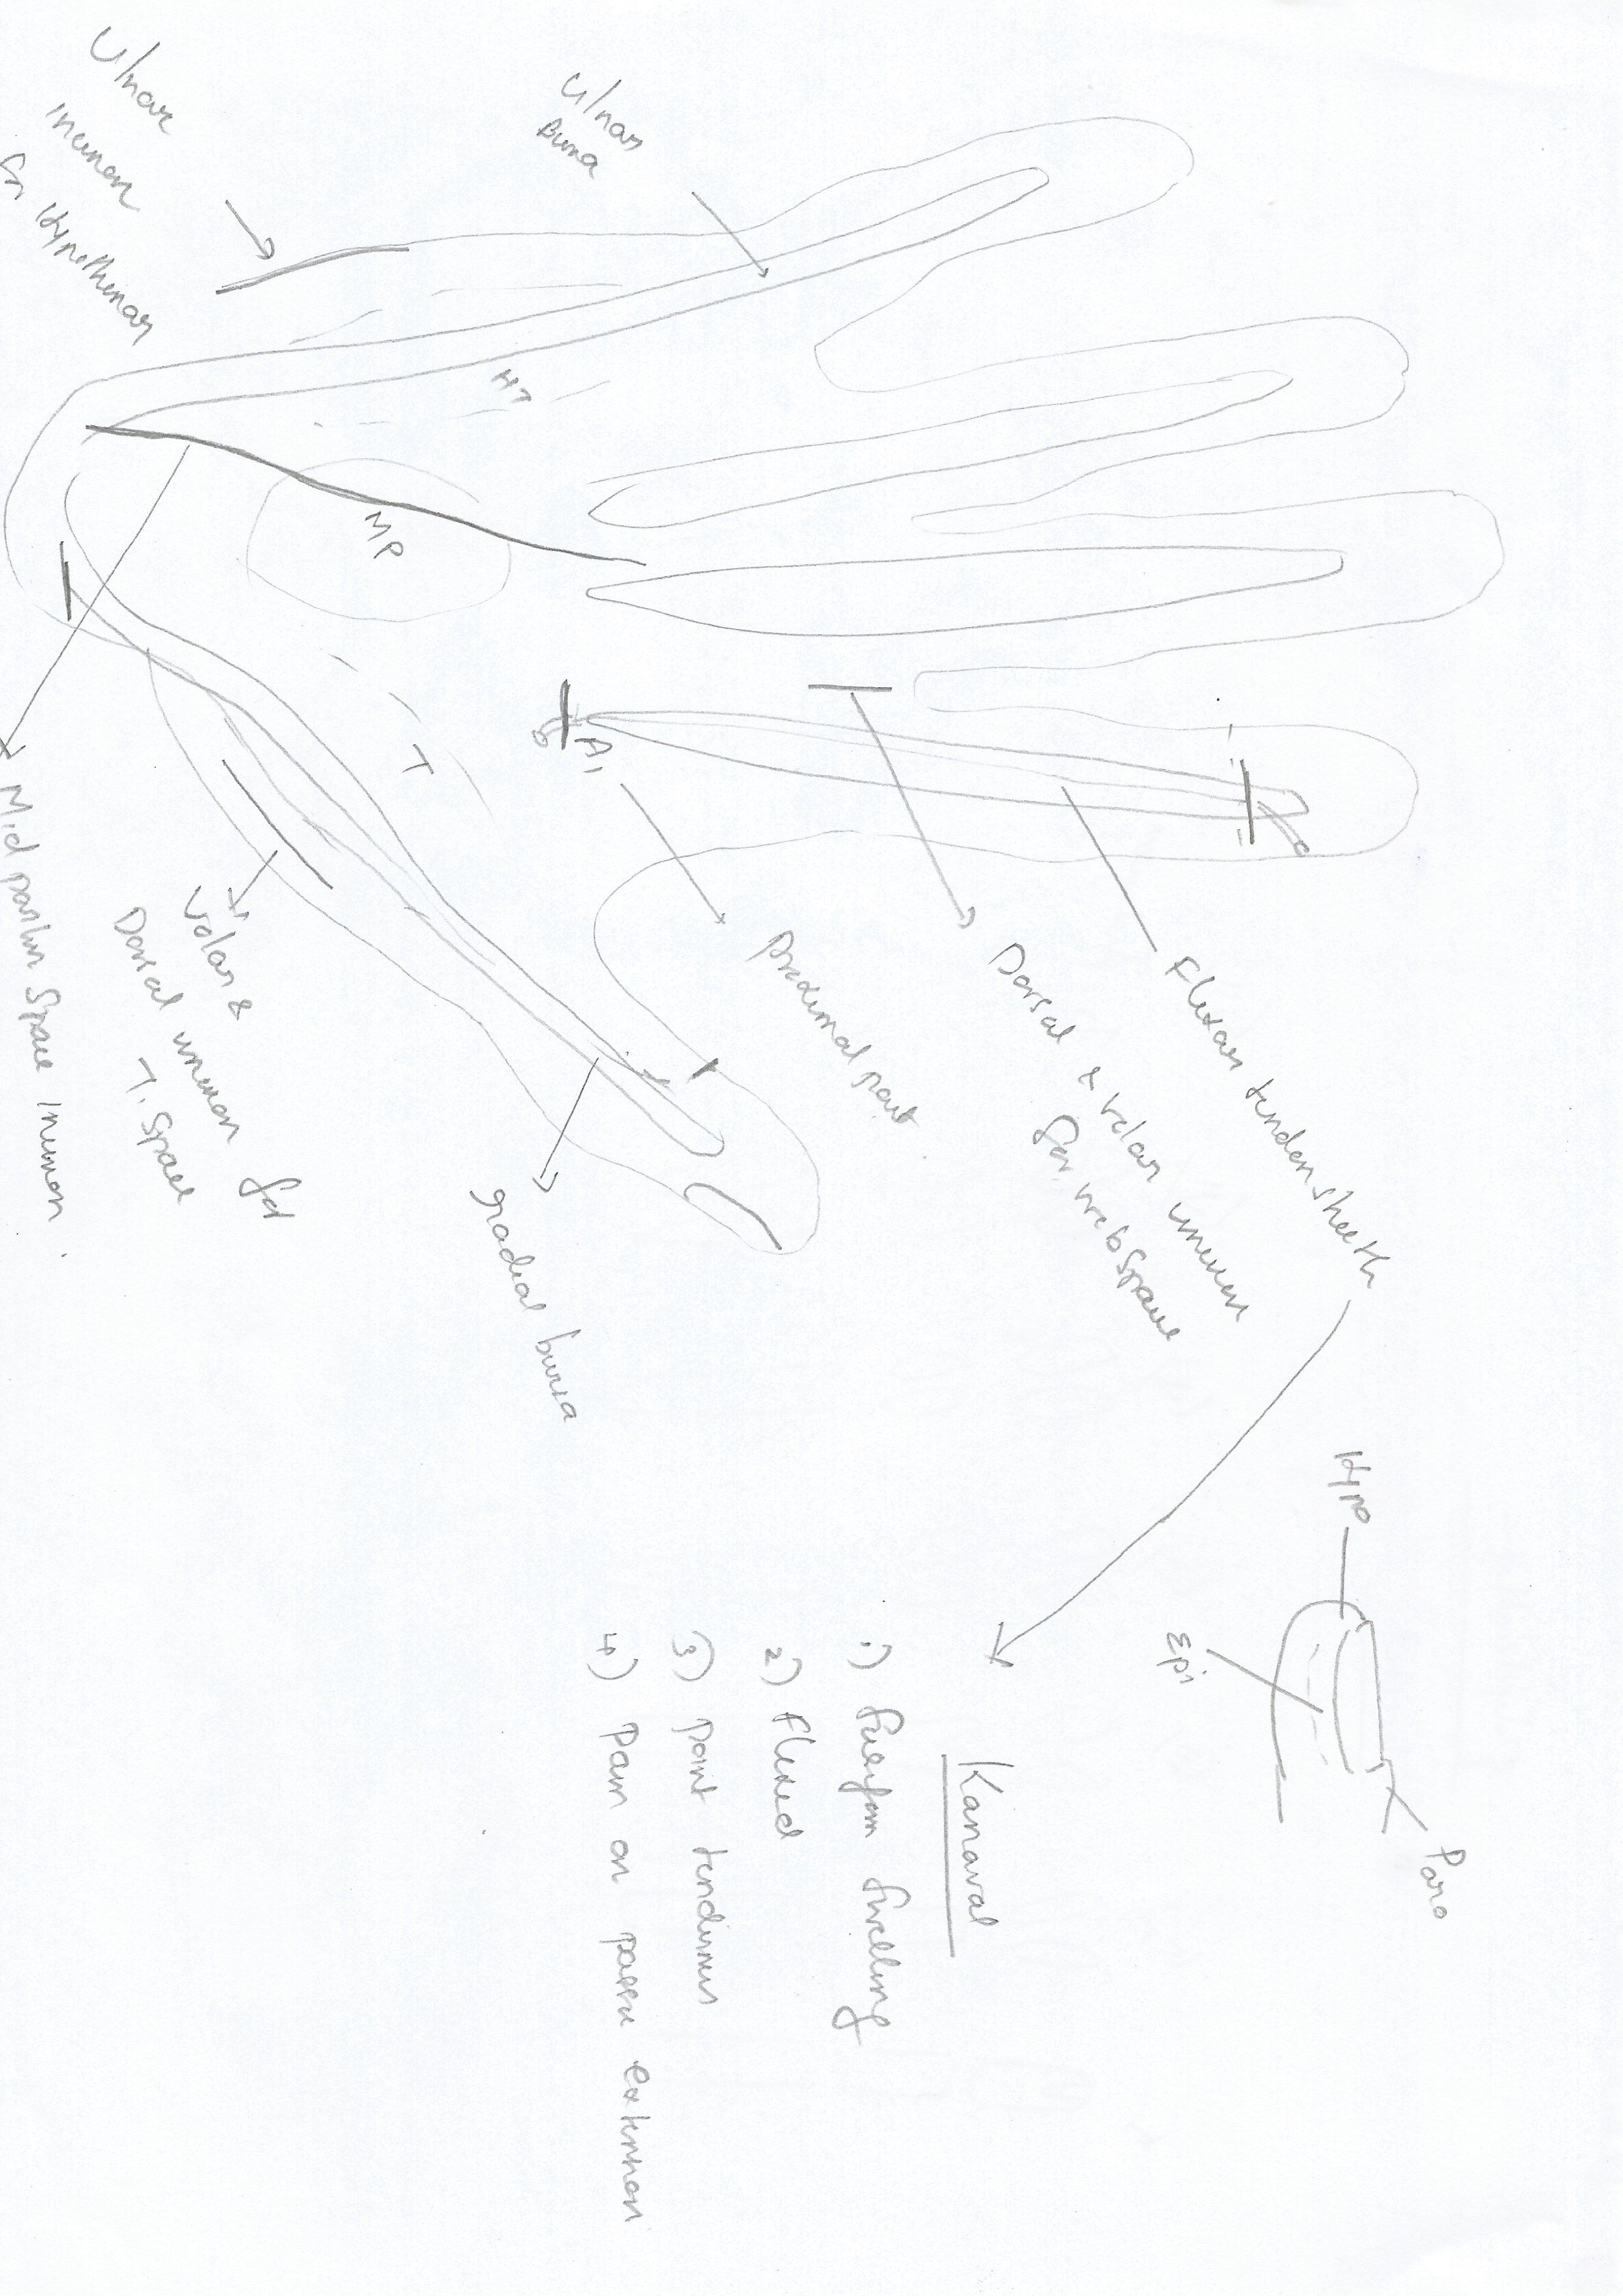 Ulnar
Incision
for Hypothenar
Ulnar
Bursa
HT
MP
T
A1
Proximal part
Dorsal & volar incision
for web space
Flexor tendon sheath
radial bursa
Volar &
Dorsal incision for
T. Space
Mid palmar Space Incision.
Hypo
Epi
Paro
Kanaval
1) Fusiform Swelling
2) Flexed
3) point tenderness
4) Pain on passive extension